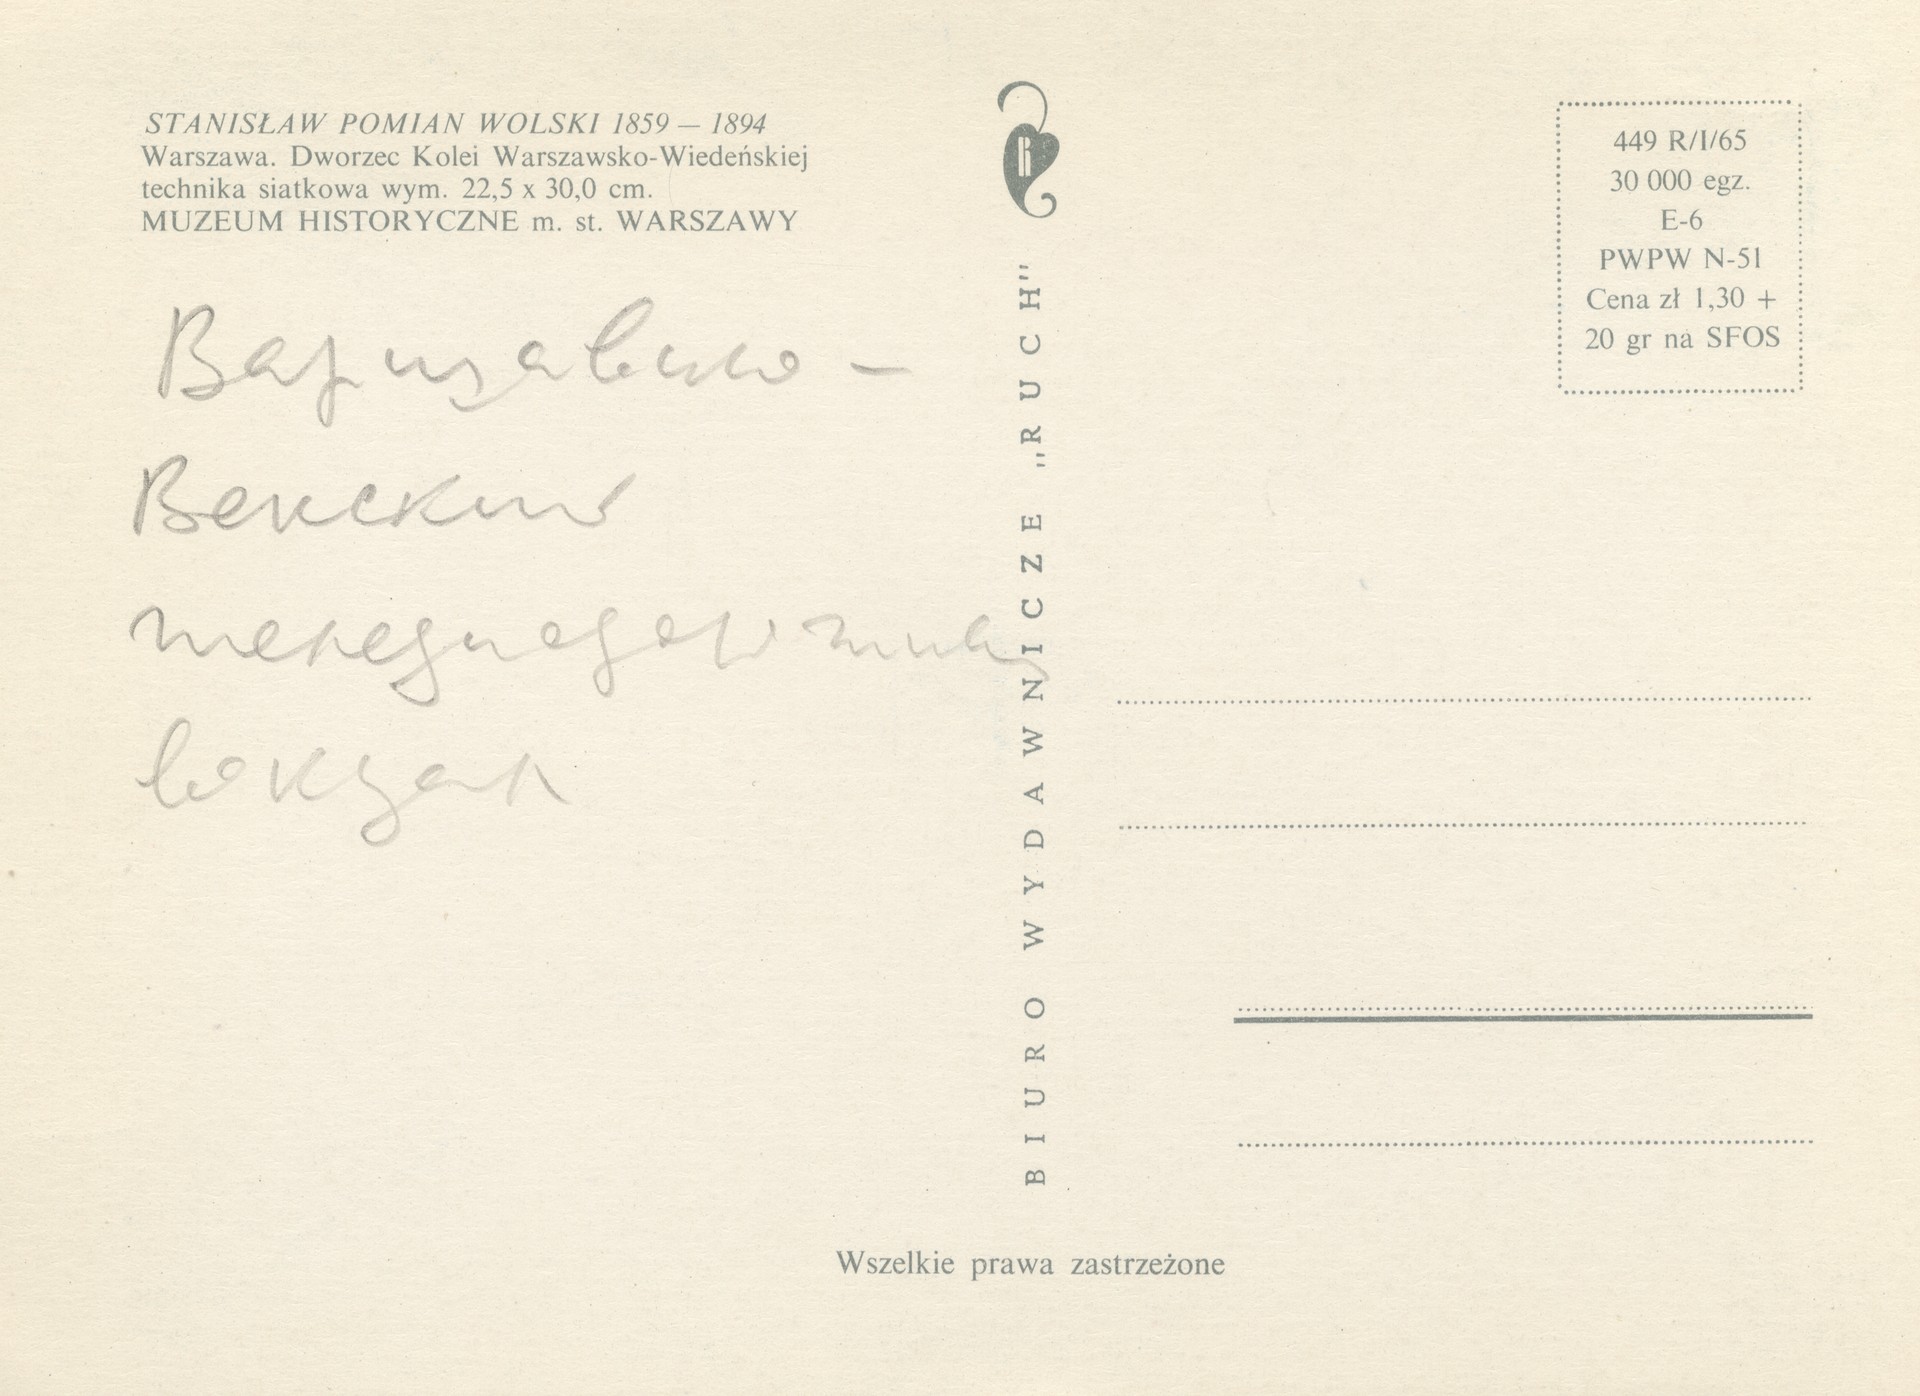 STANISŁAW POMIAN WOLSKI 1859 — 1894
Warszawa. Dworzec Kolei Warszawsko-Wiedeńskiej
technika siatkowa wym. 22,5 x 30,0 cm.
MUZEUM HISTORYCZNE m. st. WARSZAWY
Варшавско –
Венский
вокзал
BIURO WYDAWNICZE „RUCH"
449 R/I/65
30 000 egz.
E-6
PWPW N-51
Cena zł 1,30 +
20 gr na SFOS
Wszelkie prawa zastrzeżone